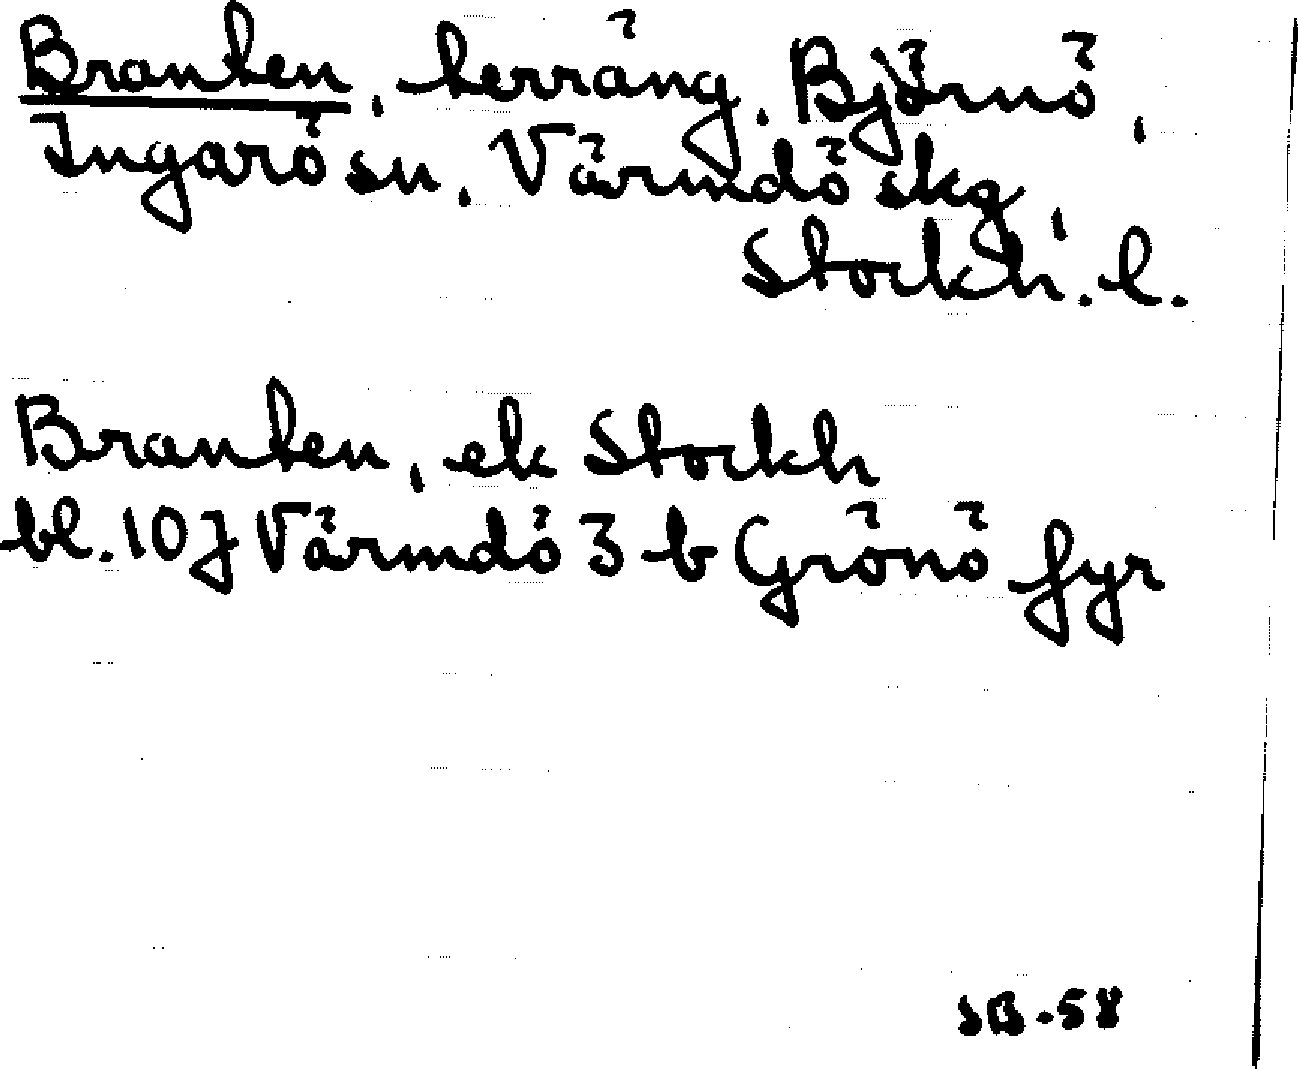 Branten, terräng, Björnö,
Ingarö sn, Värmdö skg,
Stockh. l.
Branten, ek Stockh
bl. 107 Värmdö 3 b Grönö fyr
SB-58